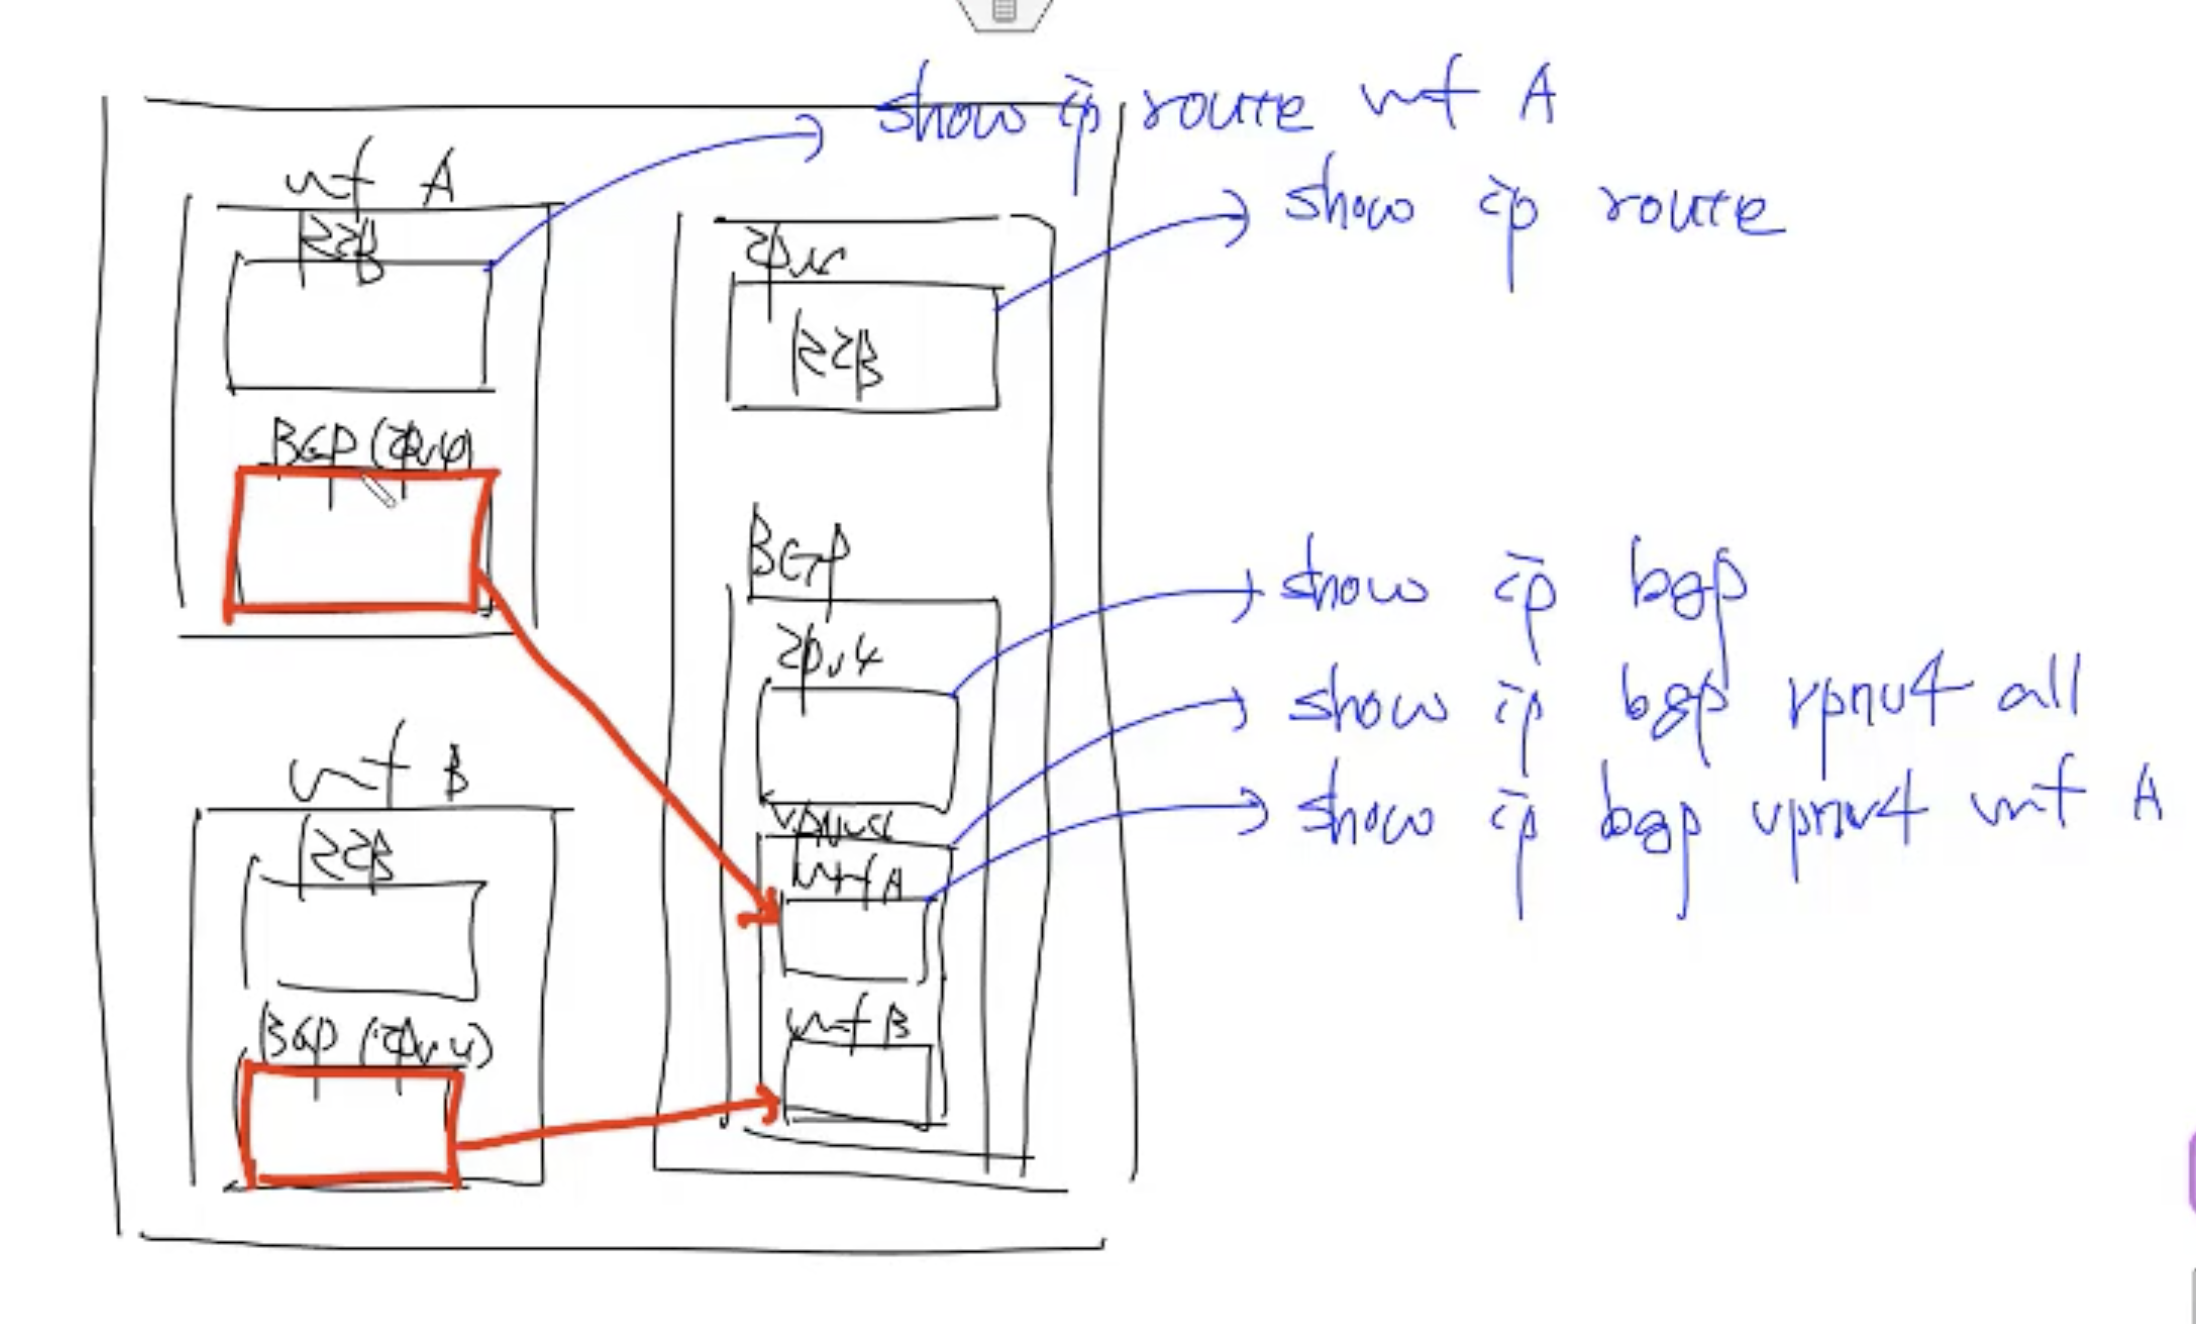 show ip route vrf A
vrf A
show ip route
RIB
ipv4
RIB
BGP (ipv4)
BGP
show ip bgp
ipv4
show ip bgp vpnv4 all
vrf B
show ip bgp vpnv4 vrf A
vpnv4
RIB
vrf A
BGP (ipv4)
vrf B